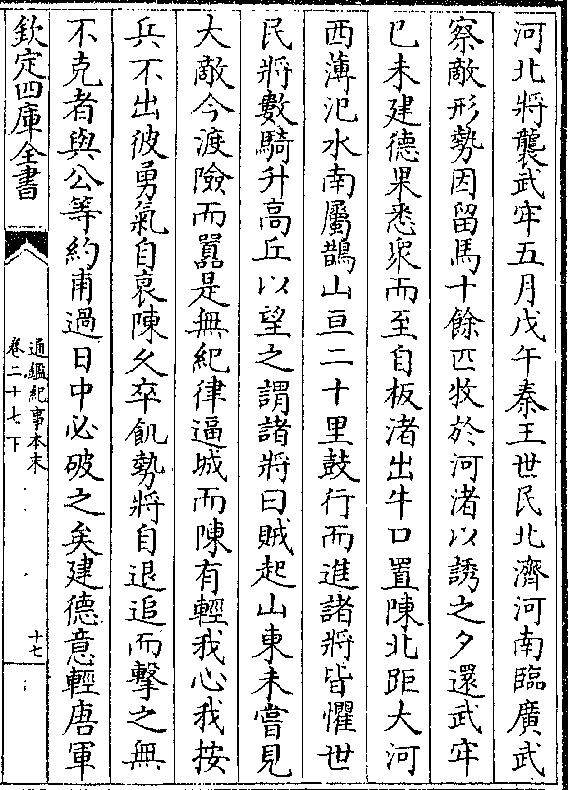 河北將襲武牢五月戊午秦王世民北濟河南臨廣武
察敵形勢因留馬十餘匹牧於河渚以誘之夕還武牢
已未建德果悉衆而至自板渚出牛口置陳北距大河
西薄汜水南屬鵲山亘二十里鼓行而進諸將皆懼世
民將數騎升高丘以望之謂諸將曰賊起山東未嘗見
大敵今渡險而囂是無紀律逼城而陳有輕我心我按
兵不出彼勇氣自衰陳久卒飢勢將自退追而擊之無
不克者與公等約甫過日中必破之矣建德意輕唐軍
欽定四庫全書
通鑑紀事本末
卷二十七下
十七